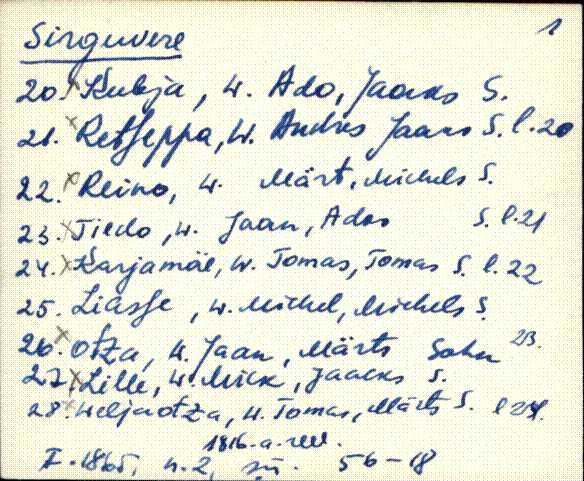 Sirguvere 1
20. x Kubja, W. Ado, Jaaks S.
21. x Retseppa, W. Andres Jaaks S. l. 20
22. x Reino, W. Märt, Michels S.
23. x Tiedo, W. Jaan, Ados S. l. 21
24. x Karjamäe, W. Tomas, Tomas S. l. 22
25. Liasse, W. Michel, Michels S.
26. x Otza, W. Jaan, Märts Sohn 23.
27. x Lille, W. Mick, Jaacks S.
28. x Weljaotza, W. Tomas, Märts S. l 24.
1816. a. rev.
F. 1865, n. 2, sü. 56-18